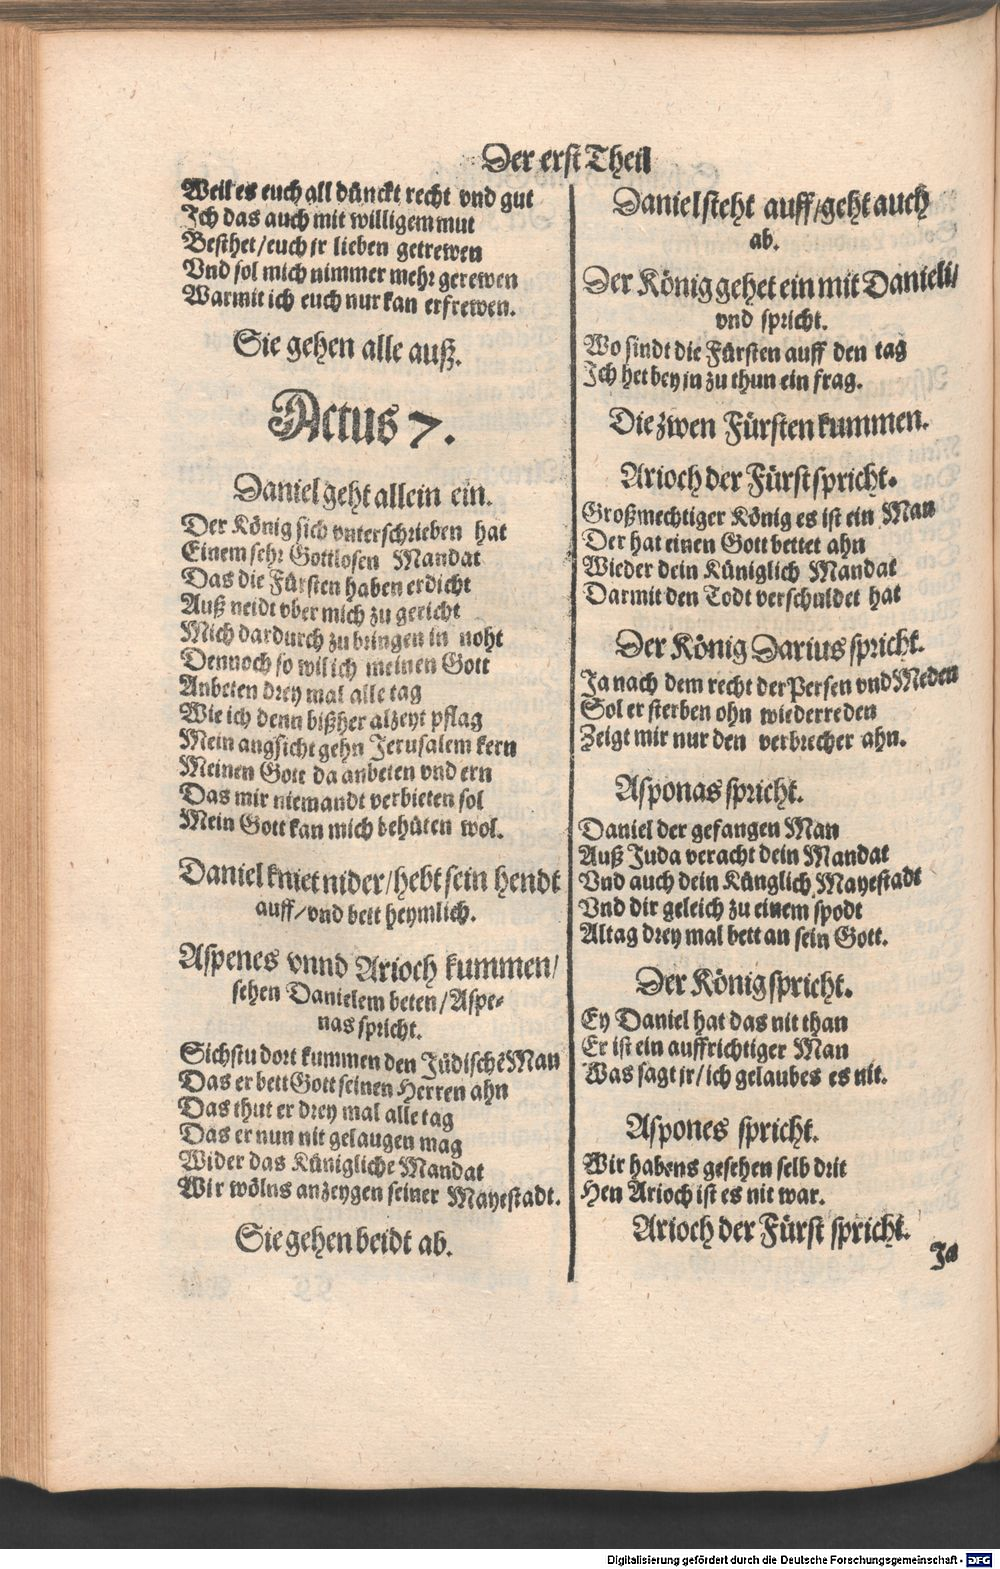 Der erst Theil
Weil es euch all dünckt recht vnd gut
Ich das auch mit willigem mut
Besthet/euch jr lieben getrewen
Vnd sol mich nimmer mehr gerewen
Warmit ich euch nur kan erfrewen.
Sie gehen alle auß.
Actus 7.
Daniel geht allein ein.
Der König sich vnterschrieben hat
Einem sehr Gottlosen Mandat
Das die Fürsten haben erdicht
Auß neidt vber mich zu gericht
Mich dardurch zu bringen in noht
Dennoch so wil ich meinen Gott
Anbeten drey mal alle tag
Wie ich denn bißher alzeyt pflag
Mein angsicht gehn Jerusalem kern
Meinen Gott da anbeten vnd ern
Das mir niemandt verbieten sol
Mein Gott kan mich behüten wol.
Daniel kniet nider/hebt sein hendt
auff/vnd bett heymlich.
Aspenes vnnd Arioch kummen/
sehen Danielem beten/Aspe-
nas spricht.
Sichstu dort kummen den Jüdischē Man
Das er bett Gott seinen Herren ahn
Das thut er drey mal alle tag
Das er nun nit gelaugen mag
Wider das Künigliche Mandat
Wir wölns anzeygen seiner Mayestadt.
Sie gehen beidt ab.
Daniel steht auff/geht auch
ab.
Der König gehet ein mit Danieli/
vnd spricht.
Wo sindt die Fürsten auff den tag
Ich het bey jn zu thun ein frag.
Die zwen Fürsten kummen.
Arioch der Fürst spricht.
Großmechtiger König es ist ein Man
Der hat einen Gott bettet ahn
Wieder dein Küniglich Mandat
Darmit den Todt verschuldet hat
Der König Darius spricht.
Ja nach dem recht der Persen vnd Meden
Sol er sterben ohn wiederreden
Zeigt mir nur den verbrecher ahn.
Asponas spricht.
Daniel der gefangen Man
Auß Juda veracht dein Mandat
Vnd auch dein Künglich Mayestadt
Vnd dir geleich zu einem spodt
Altag drey mal bett an sein Gott.
Der König spricht.
Ey Daniel hat das nit than
Er ist ein auffrichtiger Man
Was sagt jr/ich gelaubes es nit.
Aspones spricht.
Wir habens gesehen selb drit
Hen Arioch ist es nit war.
Arioch der Fürst spricht.
Ja
Digitalisierung gefördert durch die Deutsche Forschungsgemeinschaft - DFG